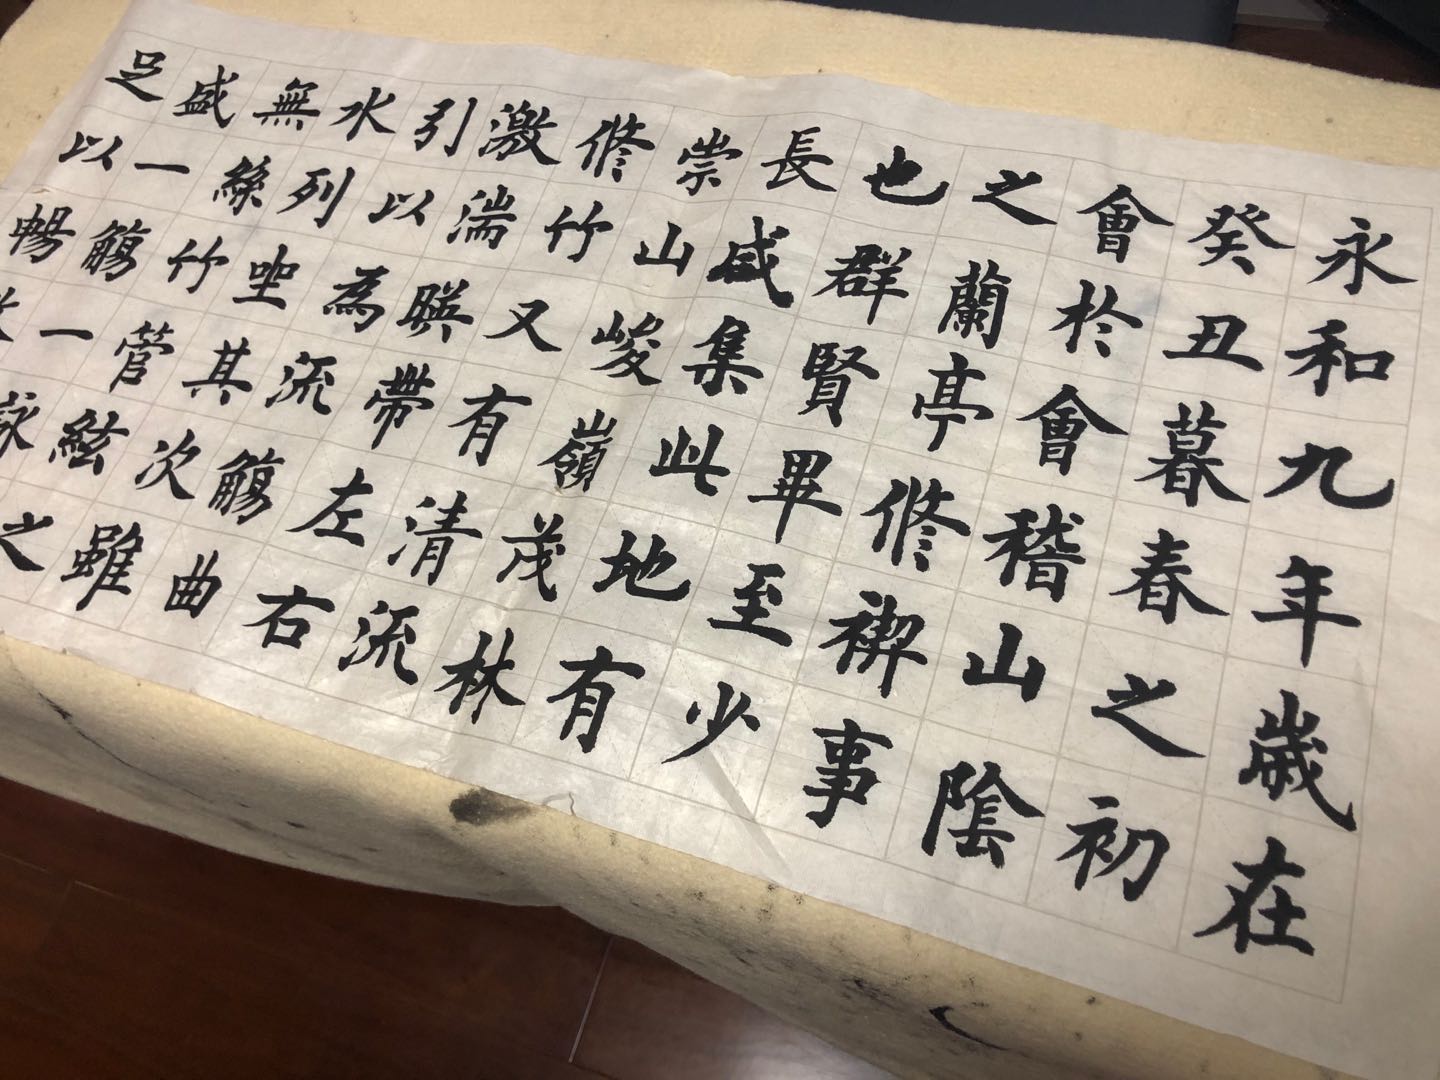 永和九年歲在
癸丑暮春之初
會於會稽山陰
之蘭亭修禊事
也群賢畢至少
長咸集此地有
崇山峻嶺茂林
修竹又有清流
激湍暎帶左右
引以為流觴曲
水列坐其次雖
無絲竹管絃之
盛一觴一詠
足以暢